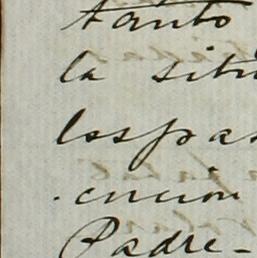 tanto
la situ
los pas
.cucion
Padre-